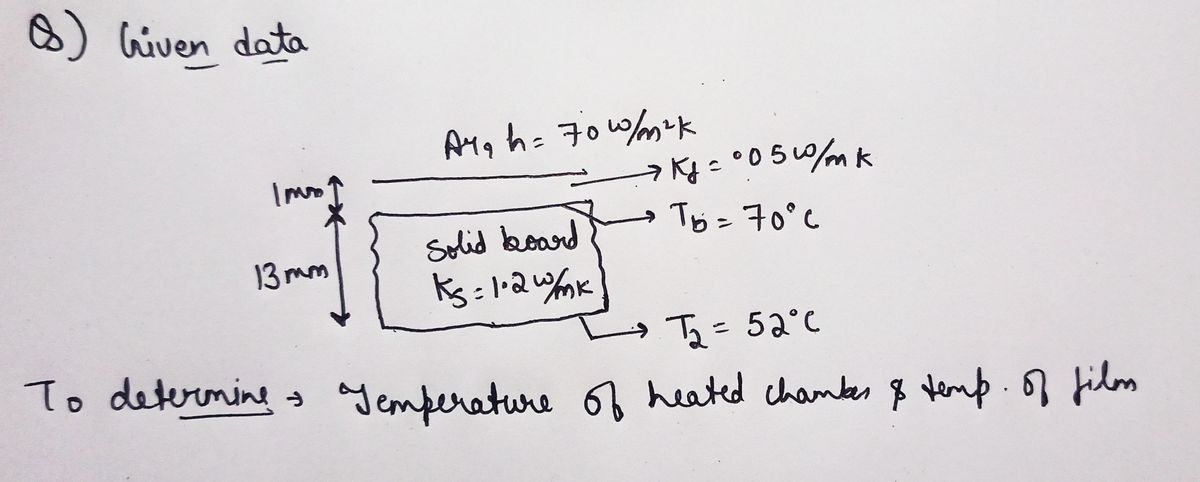 Q) Given data
Air, h = 70 W/m²K
1mm
Kf = 0.05 W/mK
Tb = 70°C
Solid board
13mm
Ks = 1.2 W/mK
T2 = 52°C
To determine → Temperature of heated chamber & temp. of film